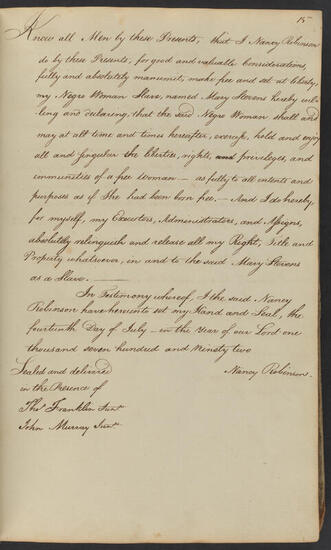 15
Know all Men by these Presents, that I Nancy Robinson
do by these Presents, for good and valuable Considerations,
fully and absolutely manumit, make free and set at liberty,
my Negro Woman Slave, named Mary Stevens hereby wil-
ling and declaring, that the said Negro Woman shall and
may at all time and times hereafter, exercise, hold and enjoy
all and singular the liberties, rights, and priviledges, and
immunities of a free Woman — as fully to all intents and
purposes as if She had been born free, — And I do hereby
for myself, my Executors, Administrators, and Assigns,
absolutely relinquish and release all my Right, Title and
Property whatsoever, in and to the said Mary Stevens
as a Slave. —
In Testimony whereof, I the said Nancy
Robinson have hereunto set my Hand and Seal, the
fourteenth Day of July — in the Year of our Lord one
thousand seven hundred and Ninety two
Sealed and delivered Nancy Robinson.
in the Presence of
Thos. Franklin Junr.
John Murray Junr.